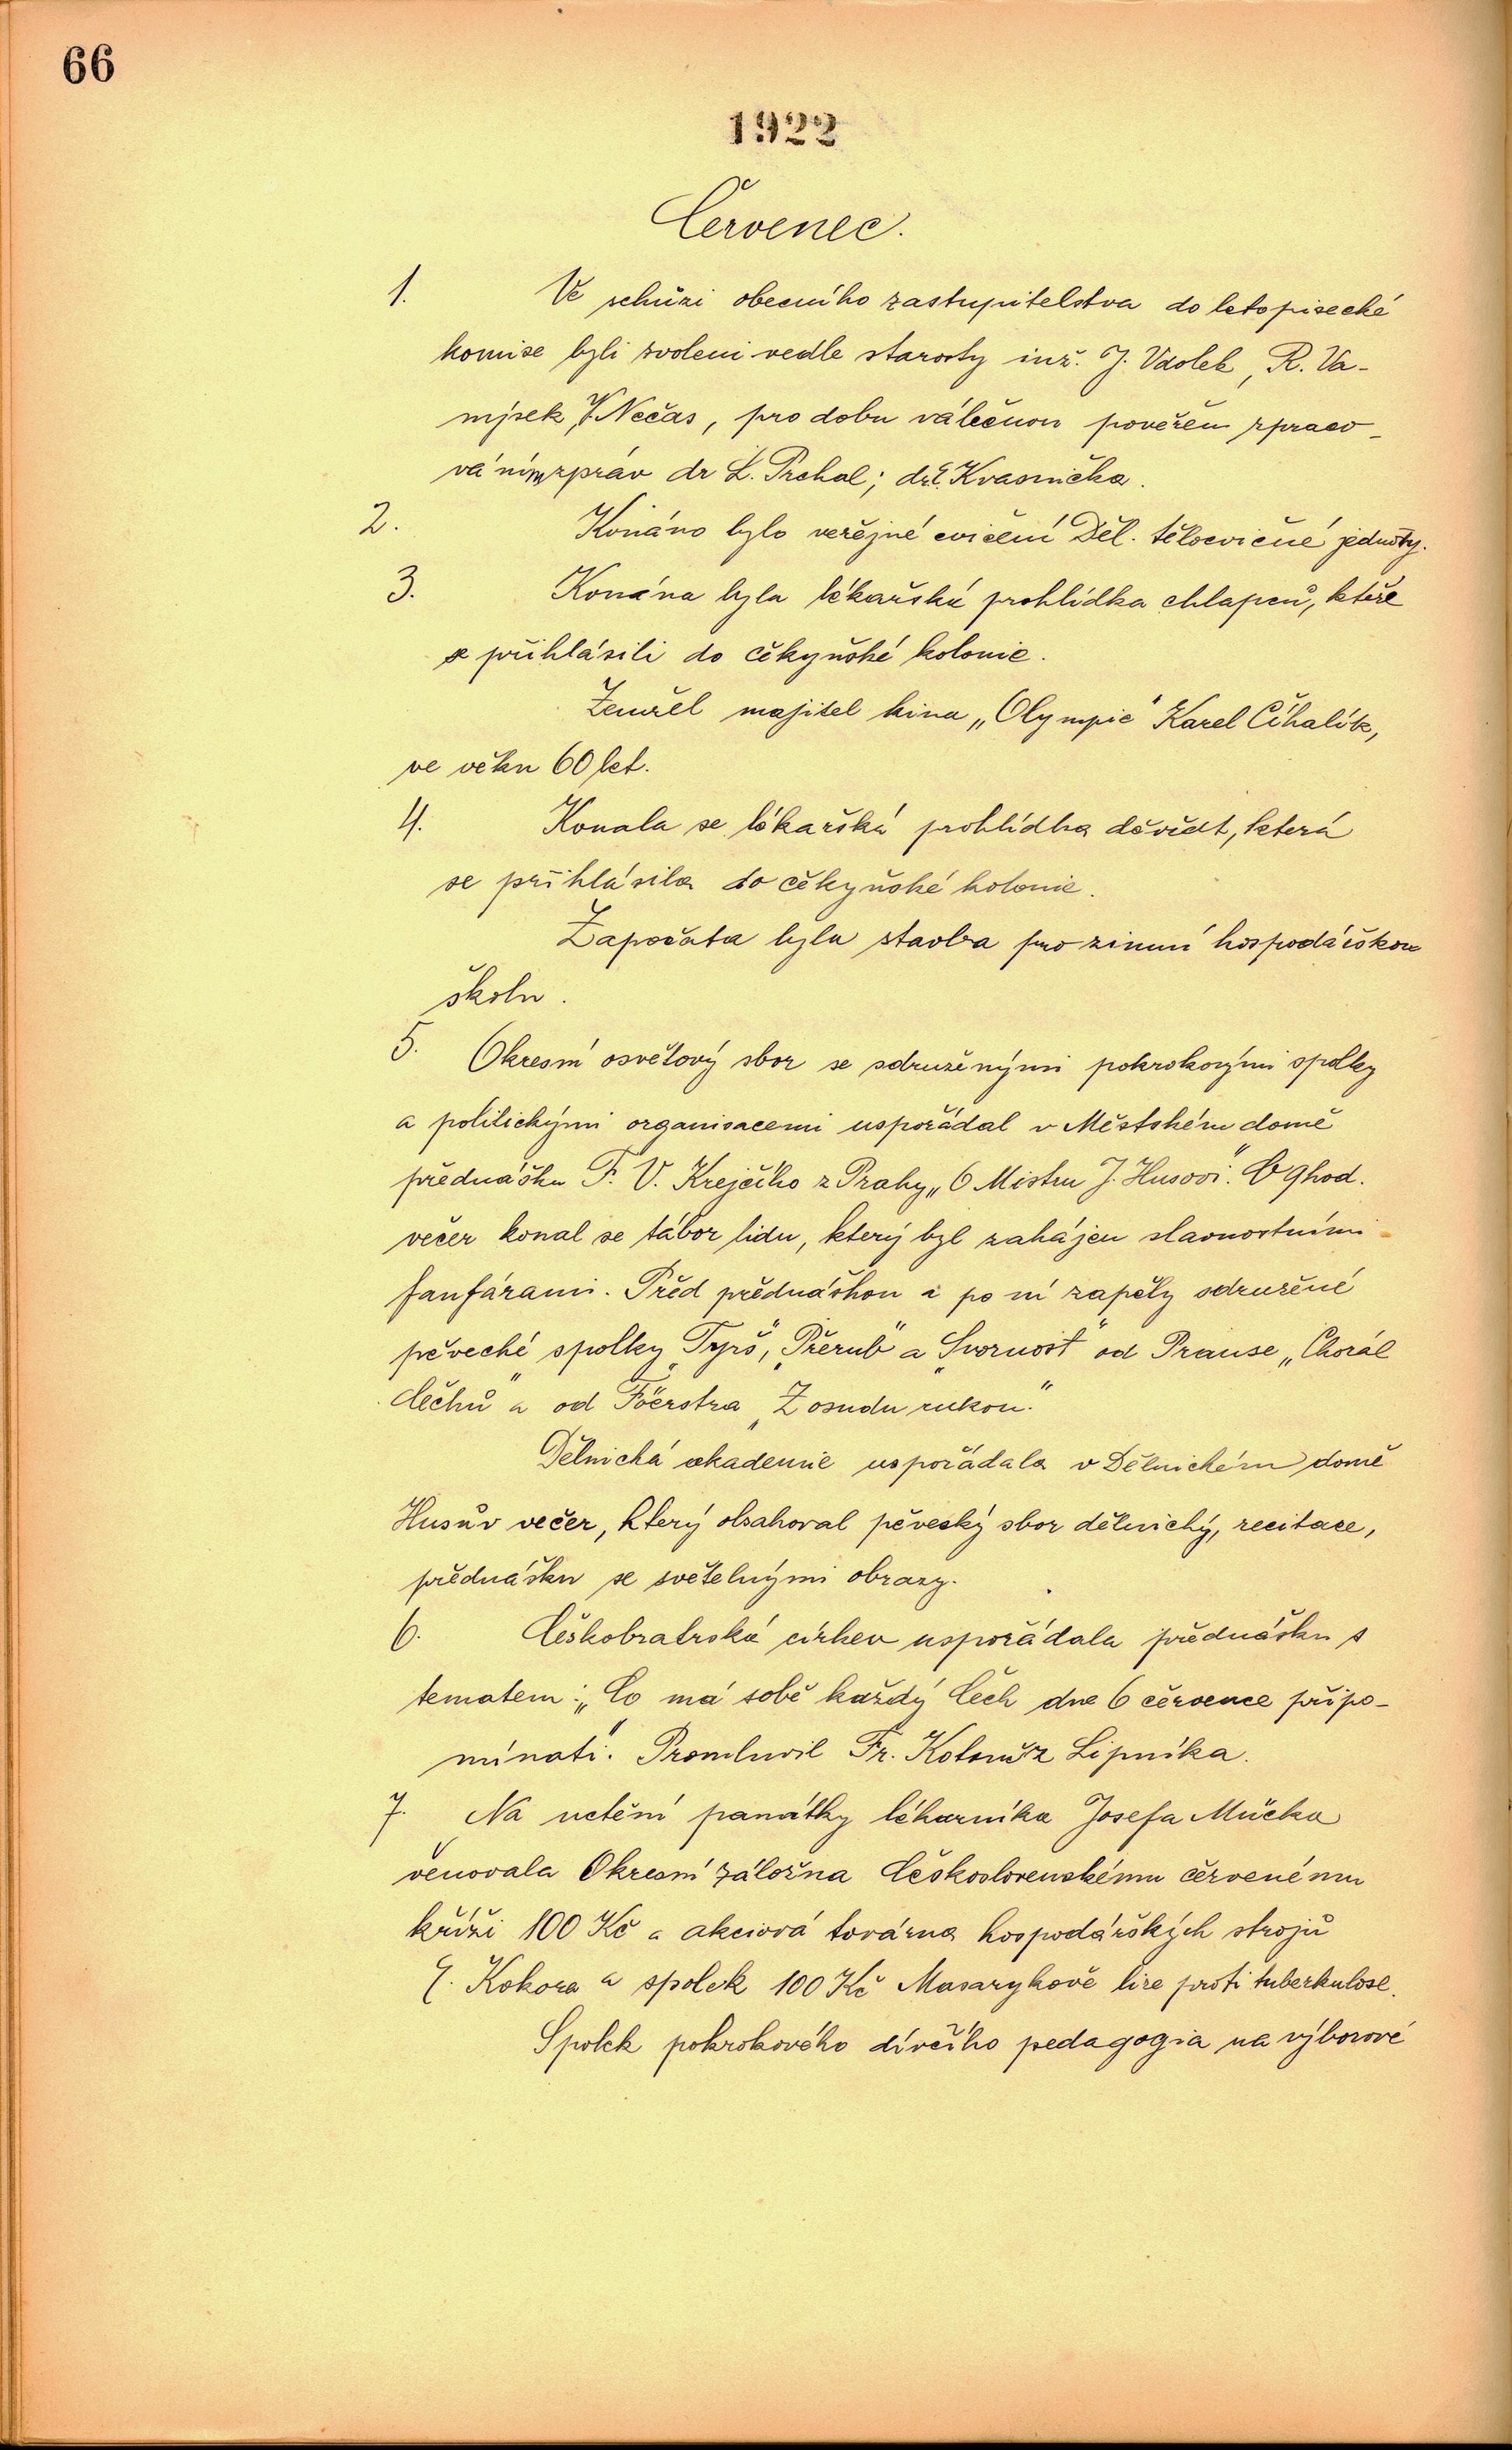 66
1922
Červenec.
1. Ve schůzi obecního zastupitelstva do letopisecké
komise byli zvoleni vedle starosty inž. J. Vdolek, R. Va-
nýsek, J. Nečas, pro dobu válečnou pověřen zpraco-
váním zpráv dr L. Prchal; dr. E. Kvasnička.
2. Konáno bylo veřejné cvičení Děl. tělocvičné jednoty.
3. Konána byla lékařská prohlídka chlapců, kteře
se přihlásili do čěkyňské kolonie.
Zemřel majitel kina „Olympie" Karel Číhalík,
ve věku 60 let.
4. Konala se lékařská prohlídka děvčat, která
se přihlásila do čěkyňské kolonie.
Započata byla stavba pro zimní hospodářskou
školu.
5. Okresní osvětový sbor se sdruženými pokrokovými spolky
a politickými organisacemi uspořádal v Městském domě
přednášku F. V. Krejčího z Prahy „O Mistru J. Husovi". O 9 hod.
večer konal se tábor lidu, který byl zahájen slavnostními
fanfárami. Před přednáškou i po ní zapěly sdružené
pěvecké spolky „Tyrš", „Přerub" a „Svornost" od Prause „Chorál
Čechů" a od Föerstra „Z osudu rukou."
Dělnická akademie uspořádala v Dělnickém domě
Husův večer, který obsahoval pěvecký sbor dělnický, recitace,
přednášku se světelnými obrazy.
6. Českobratrská církev uspořádala přednášku s
tematem: „Co má sobě každý Čech dne 6 července připo-
mínati". Promluvil Fr. z Lipníka.
7. Na uctění památky lékarníka Josefa Múčka
věnovala Okresní záložna Československému červenému
kříži 100 Kč a akciová továrna hospodářských strojů
E. Kokora a spolek 100 Kč Masarykově lize proti tuberkulose.
Spolek pokrokového dívčího pedagogia na výborové